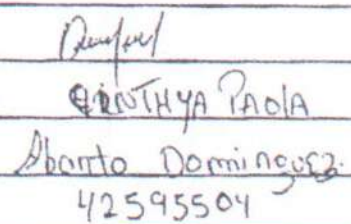 CINTHYA PAOLA
Abanto Dominguez.
42595504